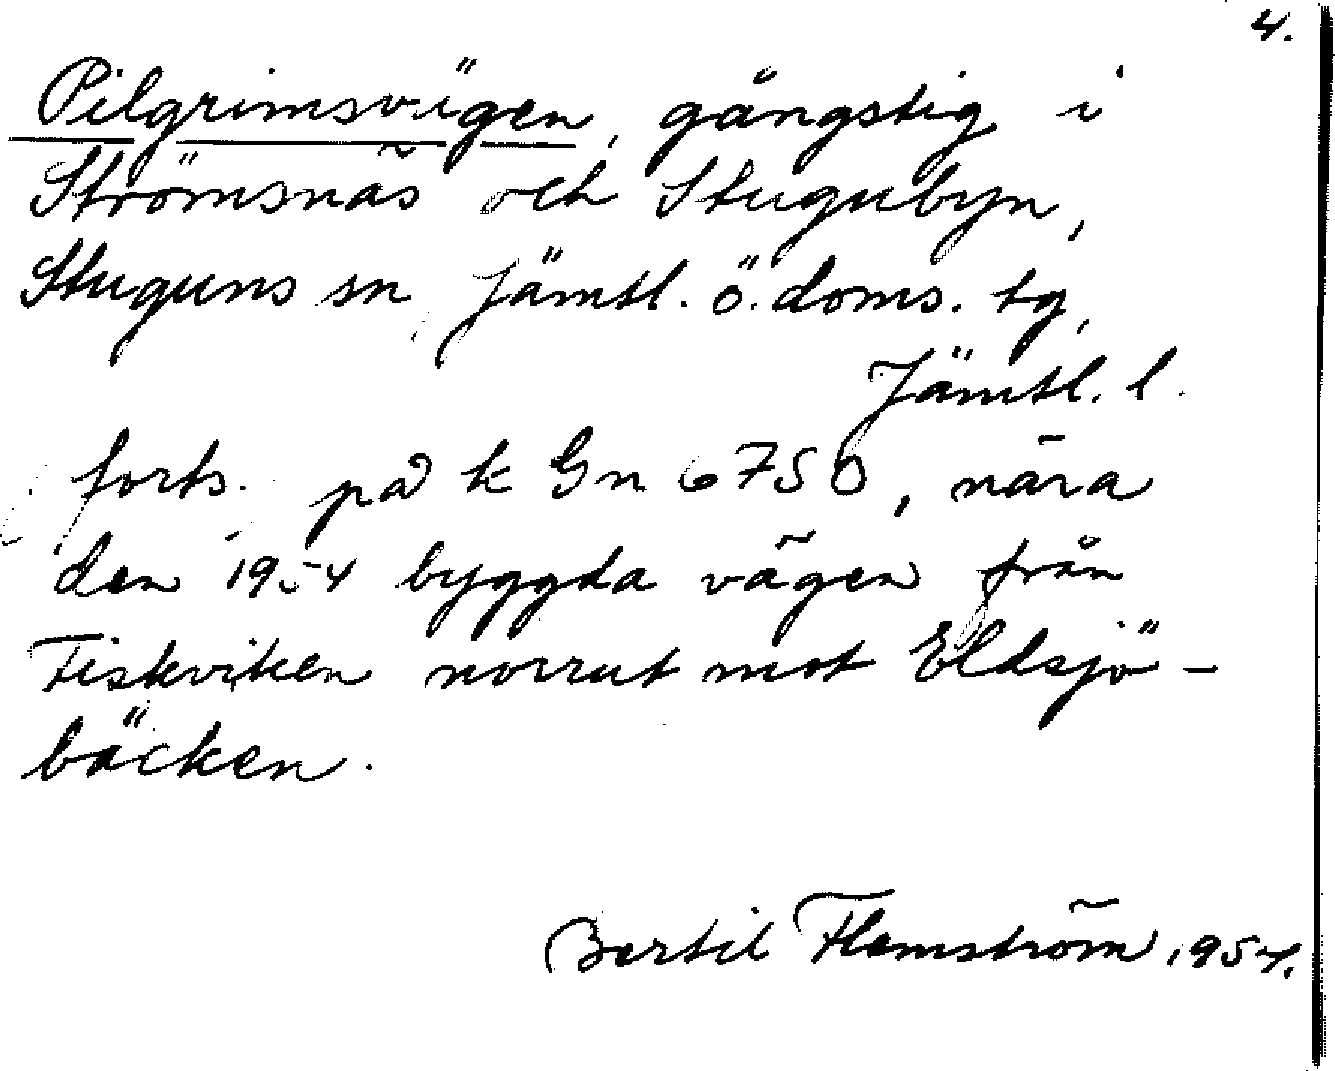 4.
Pilgrimsvägen, gångstig i
Strömsnäs och Stugubyn,
Stuguns sn, Jämtl. ö. doms. tg,
Jämtl. l.
forts. på k Gn 6750, nära
den 1954 byggda vägen från
Fiskviken norrut mot Eldsjö-
bäcken.
Bertil Flemström 1954.